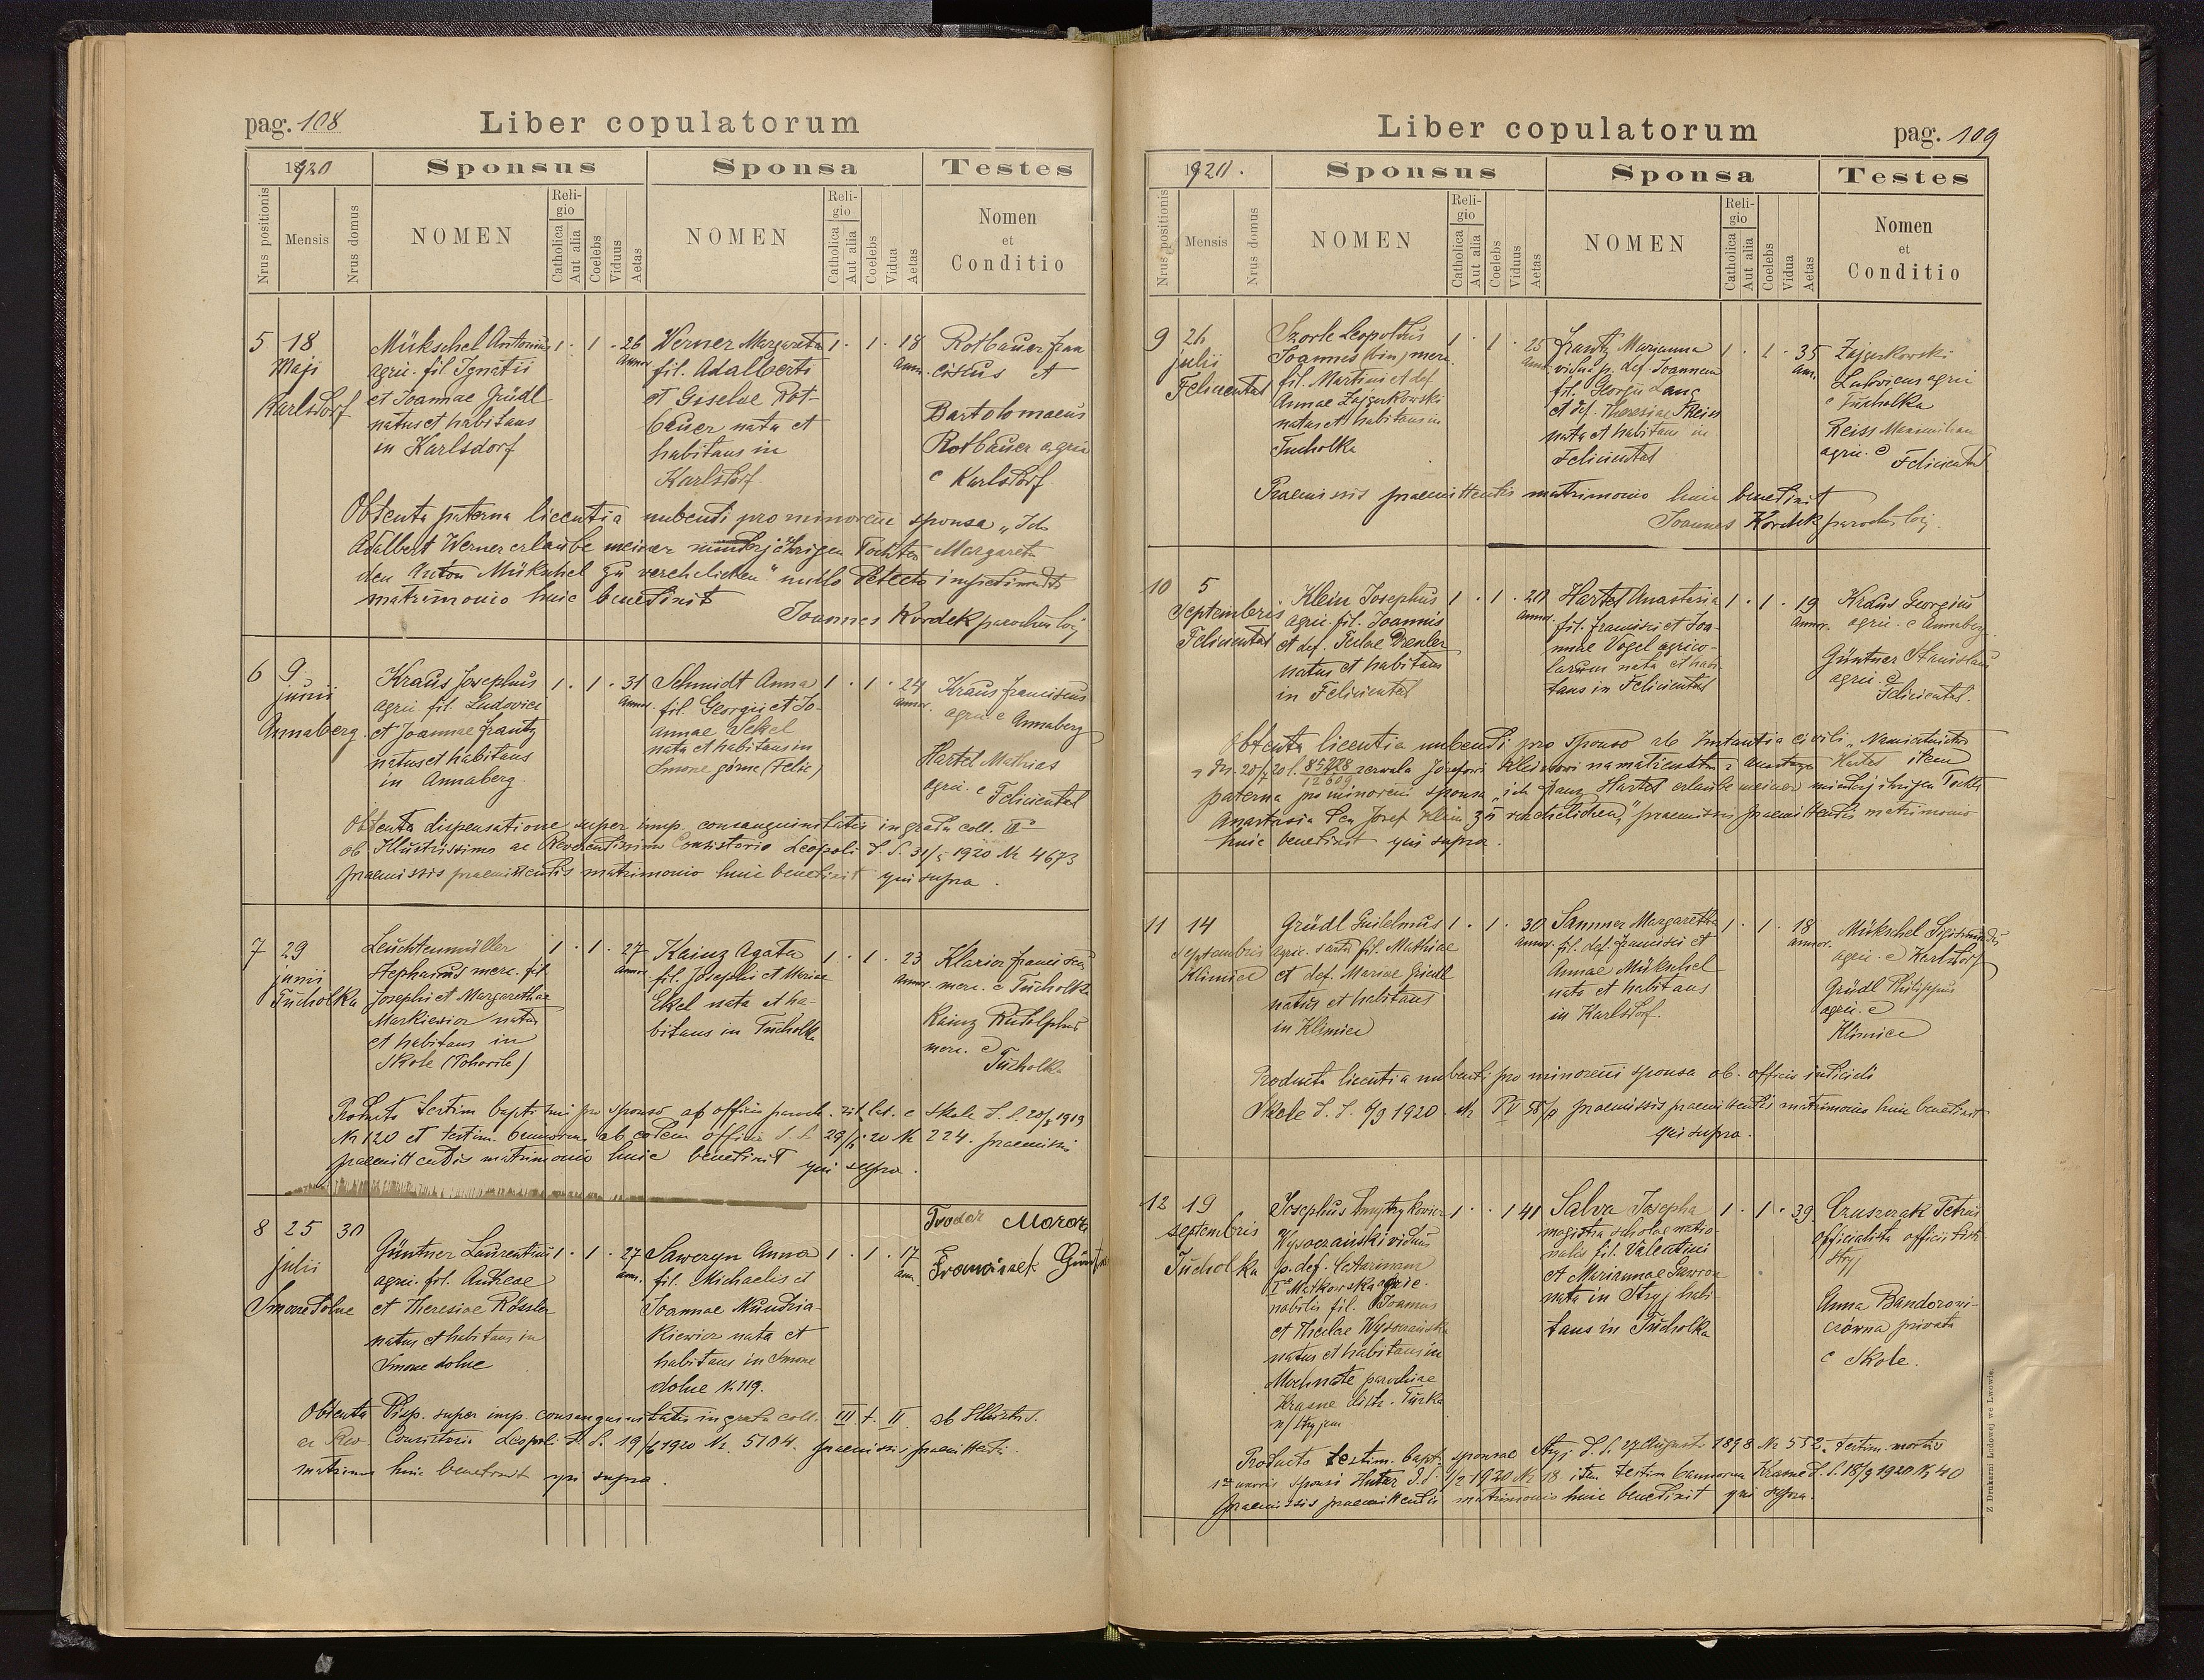 pag. 108
Liber copulatorum
1920
Sponsus
Sponsa
Testes
Nrus positionis
Mensis
Nrus domus
NOMEN
Religio
Catholica
Aut alia
Coelebs
Viduus
Aetas
NOMEN
Religio
Catholica
Aut alia
Coelebs
Vidua
Aetas
Nomen
et
Conditio
5 18 Mükschel Antonius 1 · 1 · 26 Werner Margareta 1 · 1 · 18 Rotbauer Fran
Maji agric. fil Ignatii Annor fil. Adalberti Ann. ciscus et
Karlsdorf et Joannae Grüdl et Giselae Rot- Bartolomaeus
natus et habitans bauer nata et Rotbauer agric
in Karlsdorf habitans in e Karlsdorf
Karlsdorf.
Obtenta paterna licentia nubendi pro minorene sponsa „Ich
Adalbert Werner erlaube meiner minderjährigen Tochter Margareta
den Anton Mükschel zu verehelichen" nullo detecto impedimento
matrimonio huic benedixit
Joannes Kordek parochus loci
6 9 Kraus Josephus 1 · 1 · 31 Schmidt Anna 1 · 1 · 24 Kraus Franciscus
junii agric. fil. Ludovici Annor. fil. Georgii et Jo- Annor. agric e Annaberg
Annaberg. et Joannae Frantz annae Sekel Hartel Mathias
natus et habitans nata et habitans in agric. e Feliciental
in Annaberg. Smorze górne (Felic)
Obtenta dispensatione super imp. consanguinitatis in gradu coll. III
ab Illustrissimo ac Reverentissimo Consistorio Leopoli d. d. 31/5 1920 Nr 4673
praemissis praemittentis matrimonio huic benedixit qui supra.
7 29 Leuchtenmüller 1 · 1 · 27 Kainz Agata 1 · 1 · 23 Klarior Franciscus
junii Stephanus merc. fil. Annor fil. Josephi et Mariae Annor. merc. e Tucholka
Tucholka Josephi et Margarethae Ekel nata et ha- Kainz Rudolphus
Markiewicz natus bitans in Tucholka merc. e
et habitans in Tucholka
Skole
Producto testim. baptismi pro sponso ab officio paroch. rit. lat. e Skole d. d. 1919
Nr 120 et testim. bannorum ab eodem officio d. d. 29/6 20 Nr 224. praemissis
praemittentis matrimonio huic benedixit qui supra.
8 25 30 Güntner Laurentius 1 · 1 · 27 Saweryn Anna 1 · 1 · 17 Teodor Moroz
julii agric. fil. Andreae ann. fil. Michaelis et ann. Franciszek
Smorze dolne et Theresiae Rössler Joannae Kundzia-
natus et habitans in kiewicz nata et
Smorze dolne habitans in Smorze
dolne N. 119.
Obtenta Disp. super imp. consanguinitatis in gradu coll. III t. II ab Illustris.
ac Rev. Consistorio Leopoli d. d. 19/6 1920 Nr. 5104. praemissis praemittenti-
matrimonio huic benedixit qui supra.
Liber copulatorum
pag. 109
1920.
Sponsus
Sponsa
Testes
Nrus positionis
Mensis
Nrus domus
NOMEN
Religio
Catholica
Aut alia
Coelebs
Viduus
Aetas
NOMEN
Religio
Catholica
Aut alia
Coelebs
Vidua
Aetas
Nomen
et
Conditio
9 26 Szorle Leopoldus 1 · 1 · 25 Frantz Marianna 1 · 1 · 35 Zajgerkowski
julii Joannes (bin) merc. vidua p. def. Joannem an. Ludovicus agric
Felicientat fil. Martini et def. fil. Georgii Lang e Tucholka
Annae Zajgerkowski et def. Theresiae Reiss Reiss Maximilian
natus et habitans in nata et habitans in agric. e Felicientat
Tucholka Felicientat
Praemissis praemittentis matrimonio huic benedixit
Joannes Kordek parochus loci.
10 5 Klein Josephus 1 · 1 · 20 Hartel Anastasia 1 · 1 · 19 Kraus Georgius
Septembris agric. fil. Joannis Annor. fil. Francisci et Joa- Annor. agric. e Annaberg.
Felicientat et def. Teclae Drexler nnae Vogel agrico- Güntner Stanislaus
natus et habitans larum nata et habi- agric. e
in Felicientat tans in Felicientat Felicientat.
Obtenta licentia nubendi pro sponso ab Instantia civili „Namiestnictwo
z dn. 20/7 20 l. 85428/12609 zezwala Józefowi Kleinowi na małżeństwo z Anastazyą Hartel item
paterna pro minoreni sponsa „ich Franz Hartel erlaube meiner minderjährigen Tochter
Anastasia den Josef Klein zu verehelichen," praemissis praemittentis matrimonio
huic benedixit qui supra.
11 14 Grüdl Guilelmus 1 · 1 · 30 Sanner Margaretha 1 · 1 · 18 Mükschel Sigismundus
septembris agric. fil. Mathiae annor. fil. def. Francisci et annor. agric. e Karlsdorf
Klimiec et def. Mariae Griedl Annae Mükschel Grüdl Philippus
natus et habitans nata et habitans agric. e
in Klimiec in Karlsdorf. Klimiec
Producta licentia nubendi pro minoreni sponsa ab officio iudicii
Skole d. d. 6/9 1920 Nr IV 58/ praemissis praemittentis matrimonio huic benedixit
qui supra.
12 19 Josephus Dmytrykowicz 1 · · 1 41 Salva Josepha 1 · 1 · 39 Cruszczak Petrus
septembris Wysoczański viduus magistra scholae natio- officialista officii
Tucholka p. def. Catarinam nalis fil. Valentini Stryj
Matkowska agric. et Mariannae Gawron Anna Bandorowi-
nobilis fil. Joannis nata in Stryj habi- czówna privata
et Theclae Wysoczańska tans in Tucholka e Skole.
natus et habitans in
Mochnate parochiae
Krasne distr. Turka
n/ Stryjem
Producto testim. bapt. sponsae Stryj d. d. 27 Augusti 1898 Nr 552. testim. mortis
1ae uxoris sponsi Hutar d. d. 1/2 1920 Nr 18 item testim bannorum Krasne d. d. 18/9 1920 N 40
praemissis praemittentis matrimonio huic benedixit qui supra.
Z Drukarni Ludowej we Lwowie.